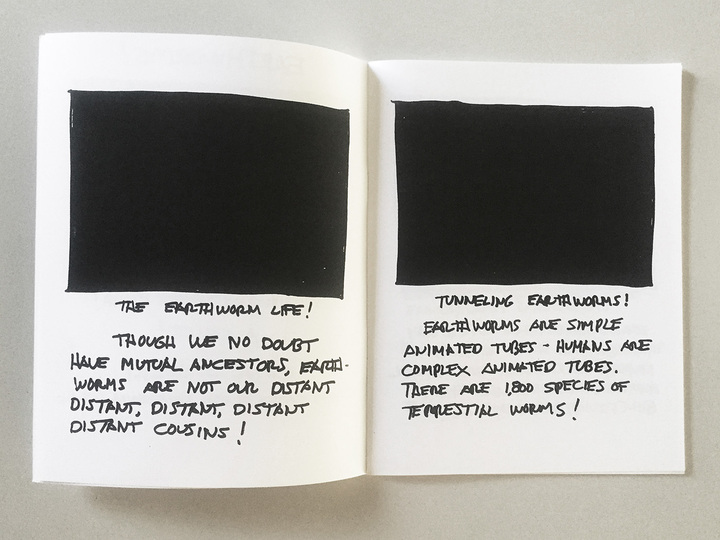 THE EARTHWORM LIFE!
THOUGH WE NO DOUBT
HAVE MUTUAL ANCESTORS, EARTH-
WORMS ARE NOT OUR DISTANT
DISTANT, DISTANT, DISTANT
DISTANT COUSINS!
TUNNELING EARTHWORMS!
EARTHWORMS ARE SIMPLE
ANIMATED TUBES - HUMANS ARE
COMPLEX ANIMATED TUBES.
THERE ARE 1,800 SPECIES OF
TERRESTIAL WORMS!